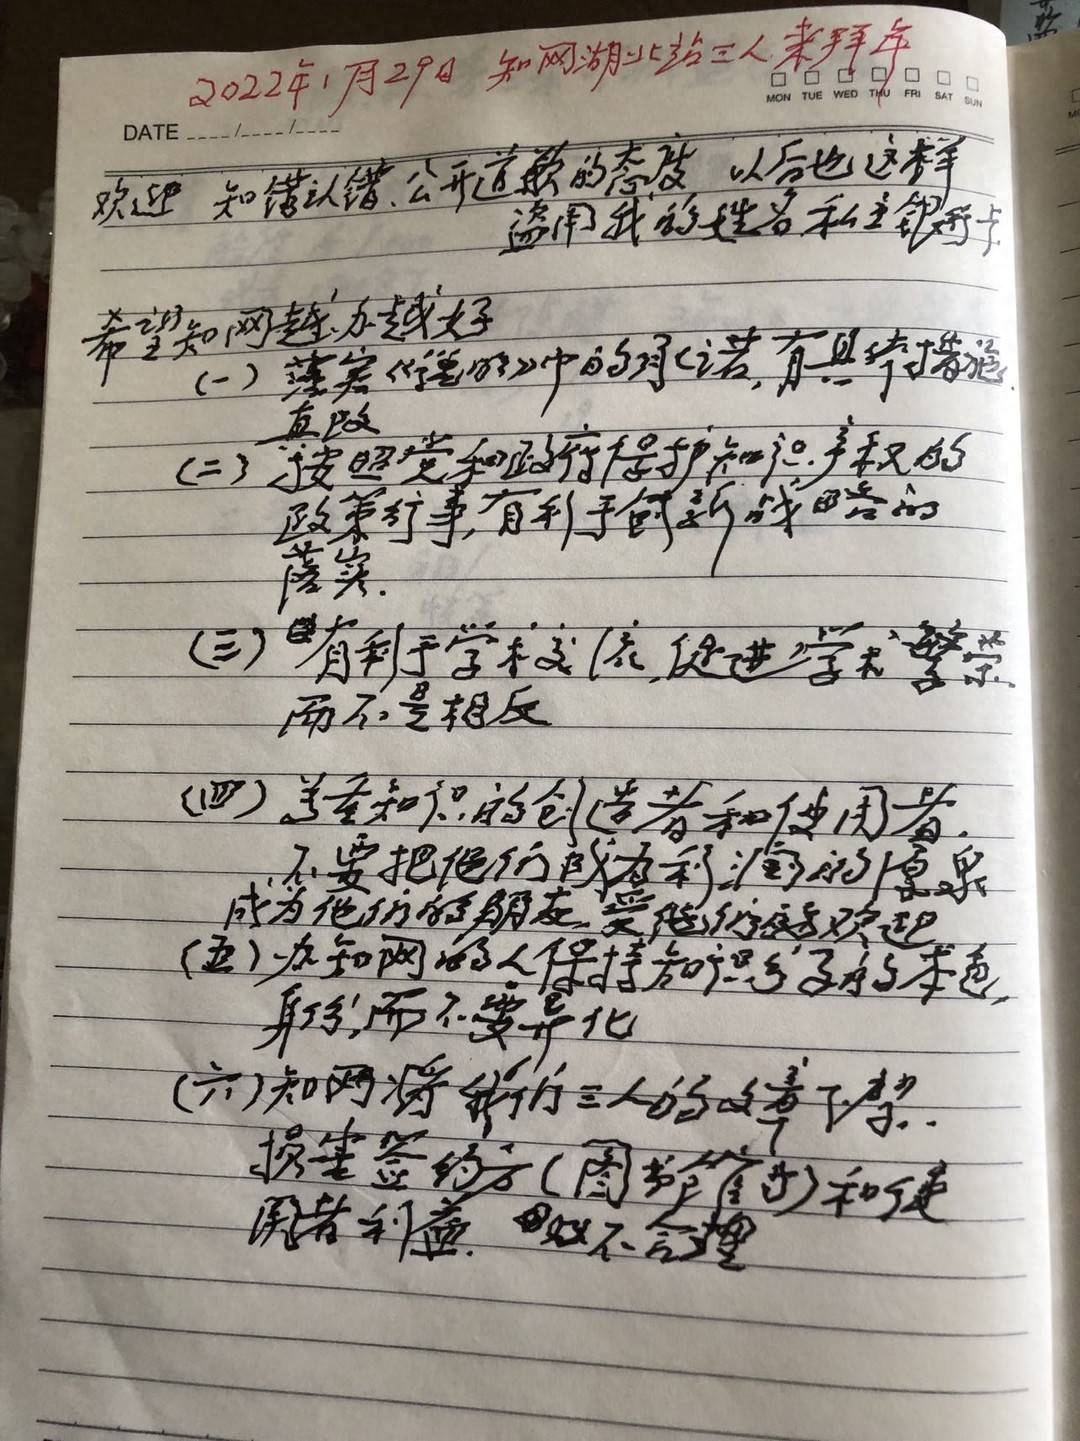 2022年1月29日 知网湖北站三人来拜年
MON TUE WED THU FRI SAT SUN
DATE ____/____/____
欢迎 知错认错、公开道歉的态度 以后也这样
盗用我的姓名私立银行卡
希望知网越办越好
(一) 落实《说明》中的承诺,有具体措施.
直改
(二) 按照党和政府保护知识产权的
政策行事,有利于创新战略的
落实.
(三) 有利于学术交流,促进学术繁荣
而不是相反
(四) 尊重知识的创造者和使用者.
不要把他们成为利润的源泉
成为他们的朋友,受他们欢迎
(五) 办知网的人保持知识分子的本色,
身份,而不要异化
(六) 知网将我们三人的文章下架..
损害签约方(图书馆)和使
用者利益. 不合理